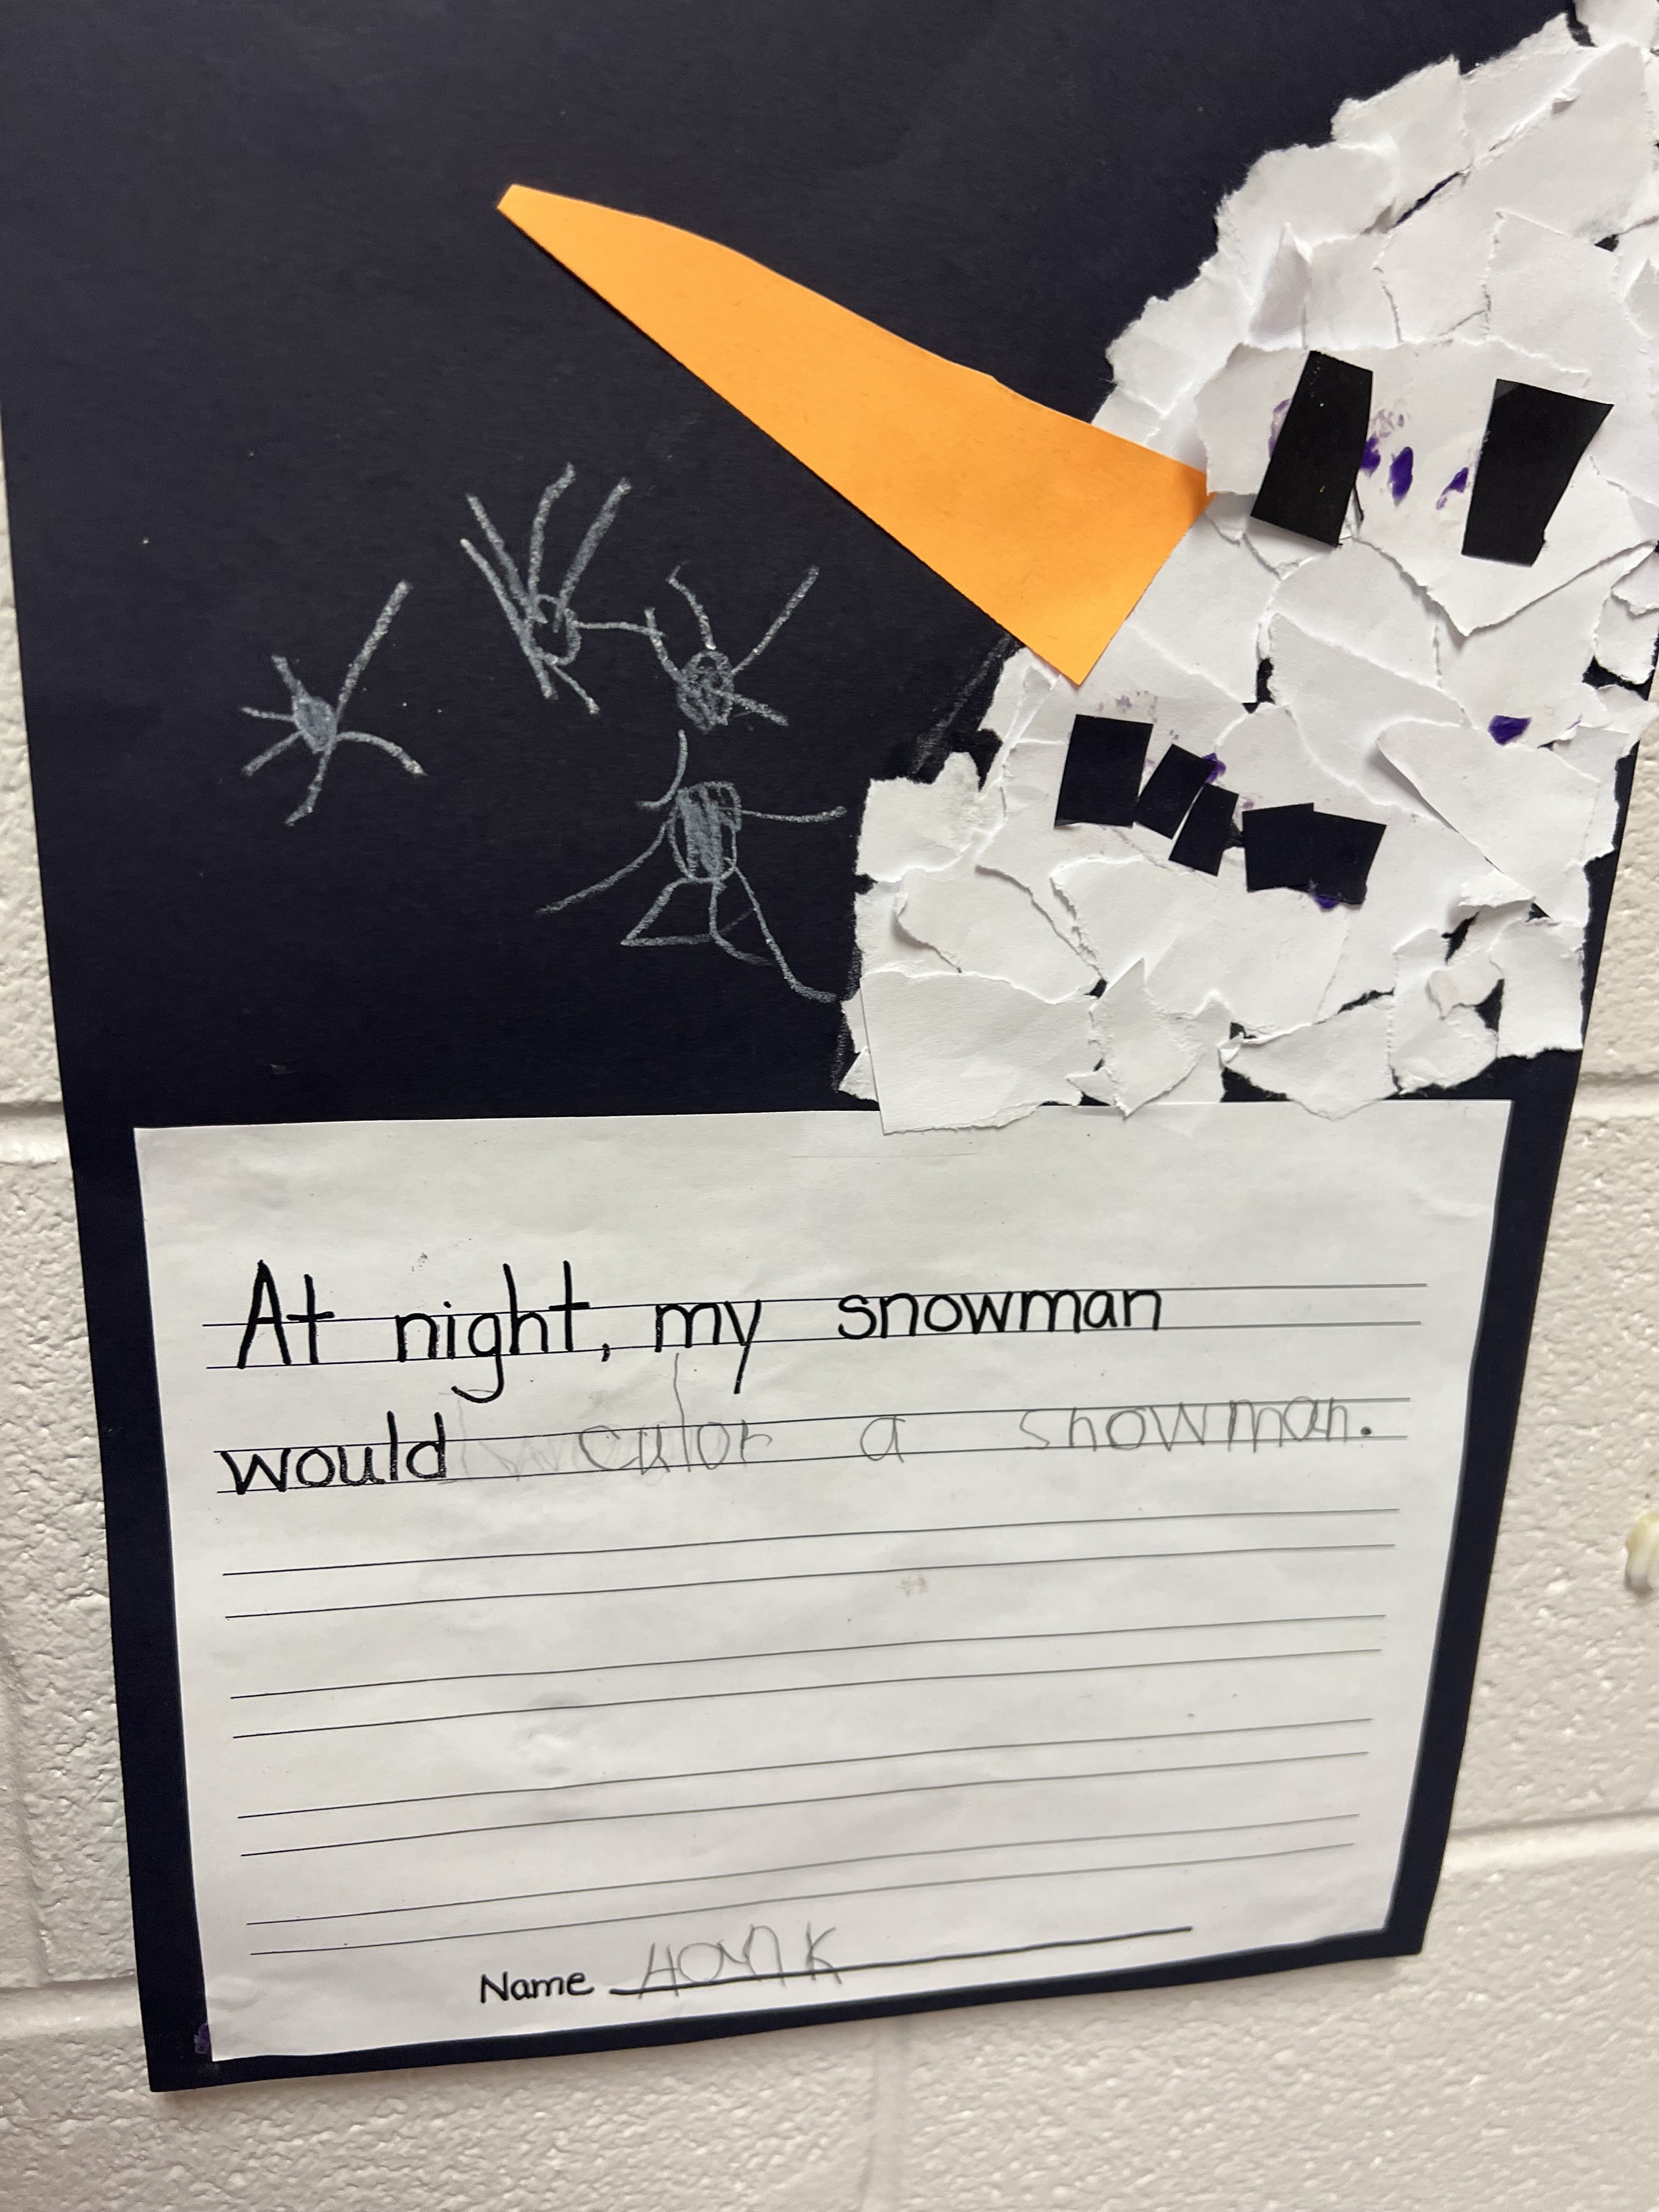 At night, my snowman
would culor a snowman.
Name